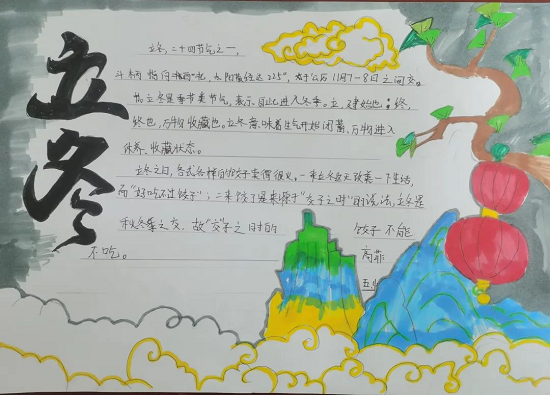 立冬
立冬，二十四节气之一，
斗柄指向西北，太阳黄经达225°，于公历11月7-8日之间交
节。立冬是季节类节气，表示自此进入冬季。立，建始也；终，
终也，万物收藏也。立冬，意味着生气开始闭蓄，万物进入
休养、收藏状态。
立冬之日，各式各样的饺子卖得很火。一来立冬改善一下生活，
而“好吃不过饺子”；二来饺子是来源于“交子之时”的说法，立冬是
秋冬季之交，故“交”子之时的 饺子不能
不吃。 高菲
五